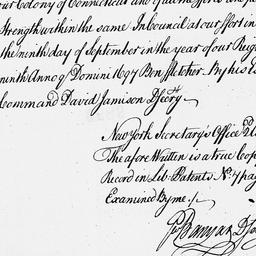 our Colony of Connecticut and
Strength within the same In Council at our ffort in
the ninth day of September in the year of our Reig
ninth Annoq Domini 1697 Ben ffletcher. By his
Command David Jamison D Secry
New York Secretary's Office
The afore Written is a true Cop
Record in Lib: Patents No 7 pag
Examined By me
Banyar D